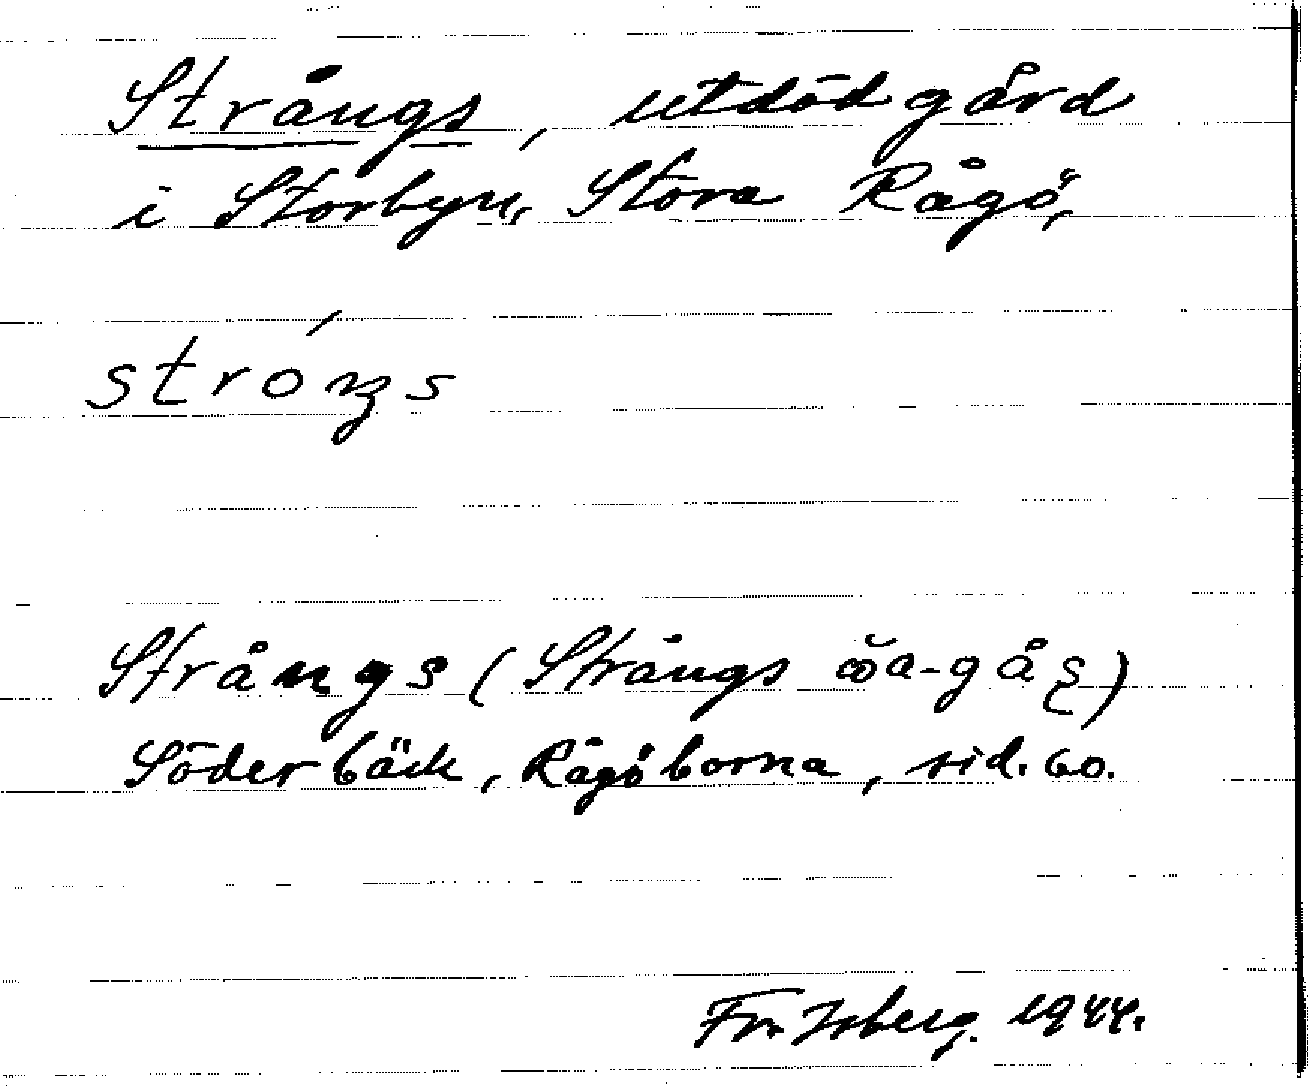 Strångs, utdöd gård
i Storbyn, Stora Rågö,
stróŋs
Strångs (Strångs
Söderbäck, Rågöborna, sid. 60.
Fr. Isberg. 1944.